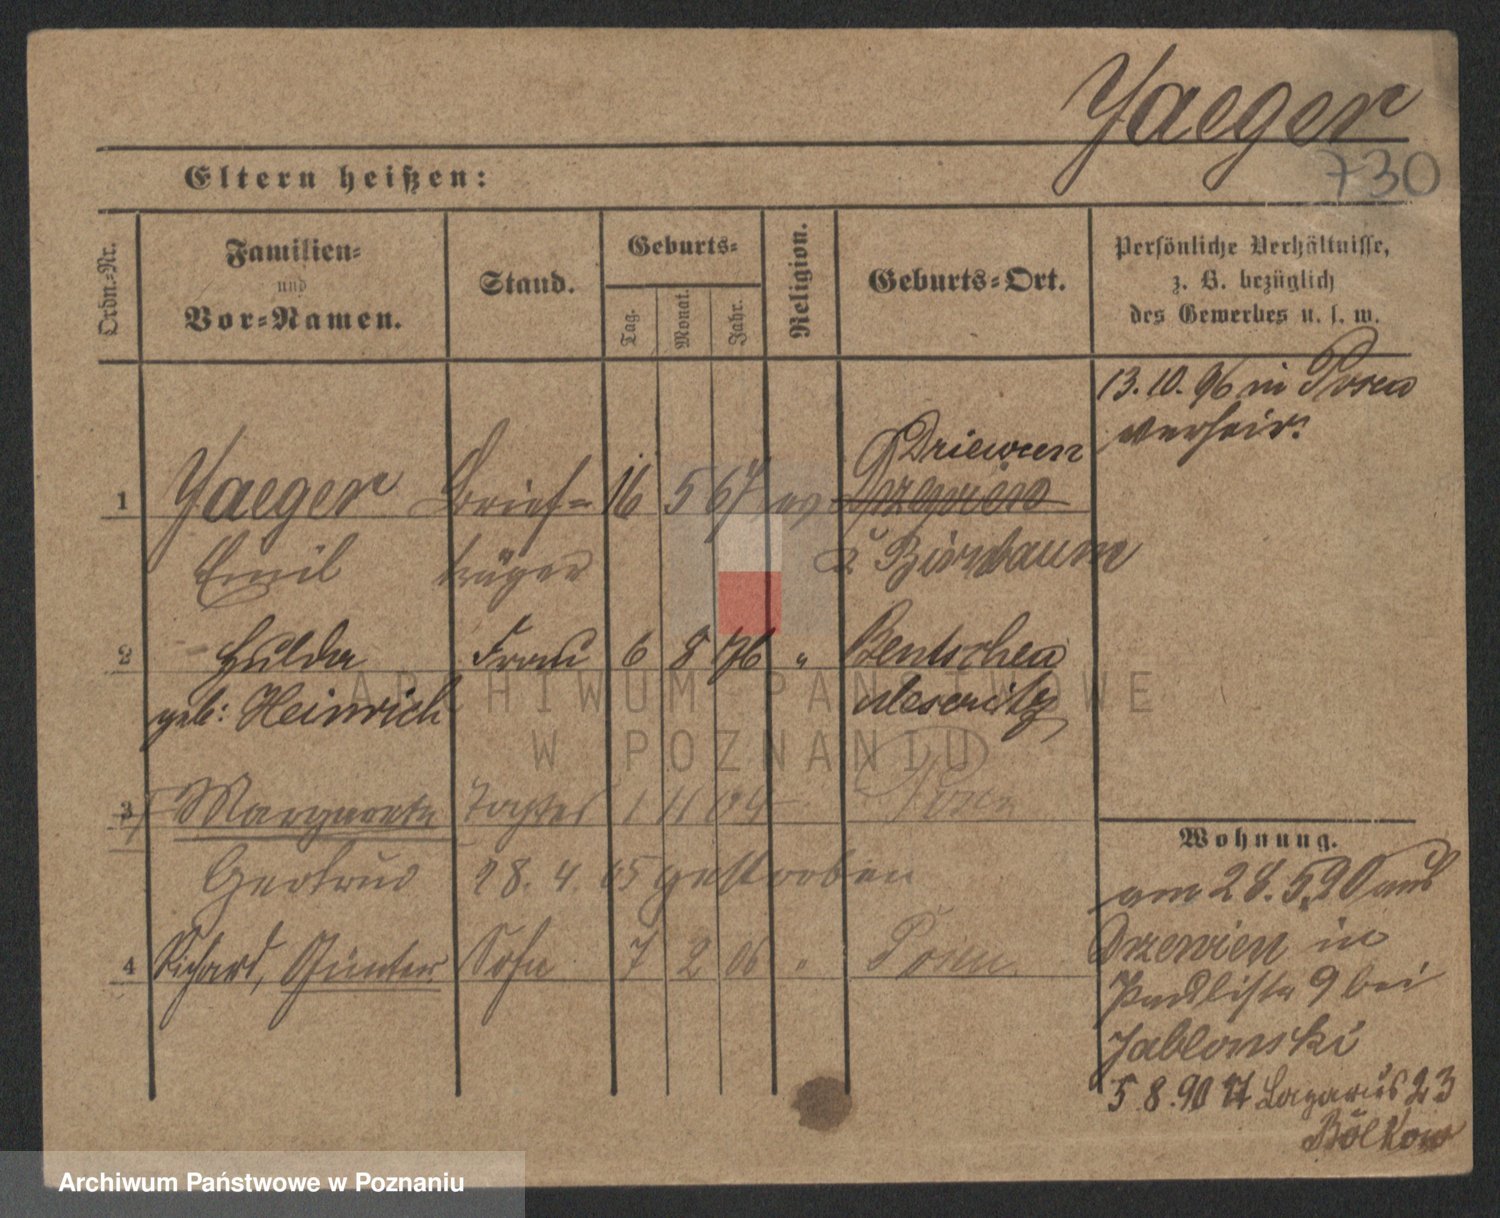 Yaeger
730
Eltern heißen:
Ordn.-Nr.
Familien-
und
Vor-Namen.
Stand.
Geburts-
Tag.
Monat.
Jahr.
Religion.
Geburts-Ort.
Persönliche Verhältnisse,
z. B. bezüglich
des Gewerbes u. s. w.
13. 10. 96 in Posen
verheir.
1 Yaeger Brief- 16 5 67 ev Driewen
Emil träger Birnbaum
2 Hulda Frau 6 8 76 " Bentschen
geb: Heinrich Meseritz
3 Margarete Tochter 1 11 04 Posen
Gertrud 28. 4. 05 gestorben
4 Richard, Günter Sohn 7 2 06 " Posen
Wohnung.
am 28. 5. 90 aus
Drzewien in
9 bei
Jablonski
5. 8. 90 St Lazarus 23
Bölkow
ARCHIWUM PAŃSTWOWE
W POZNANIU
Archiwum Państwowe w Poznaniu